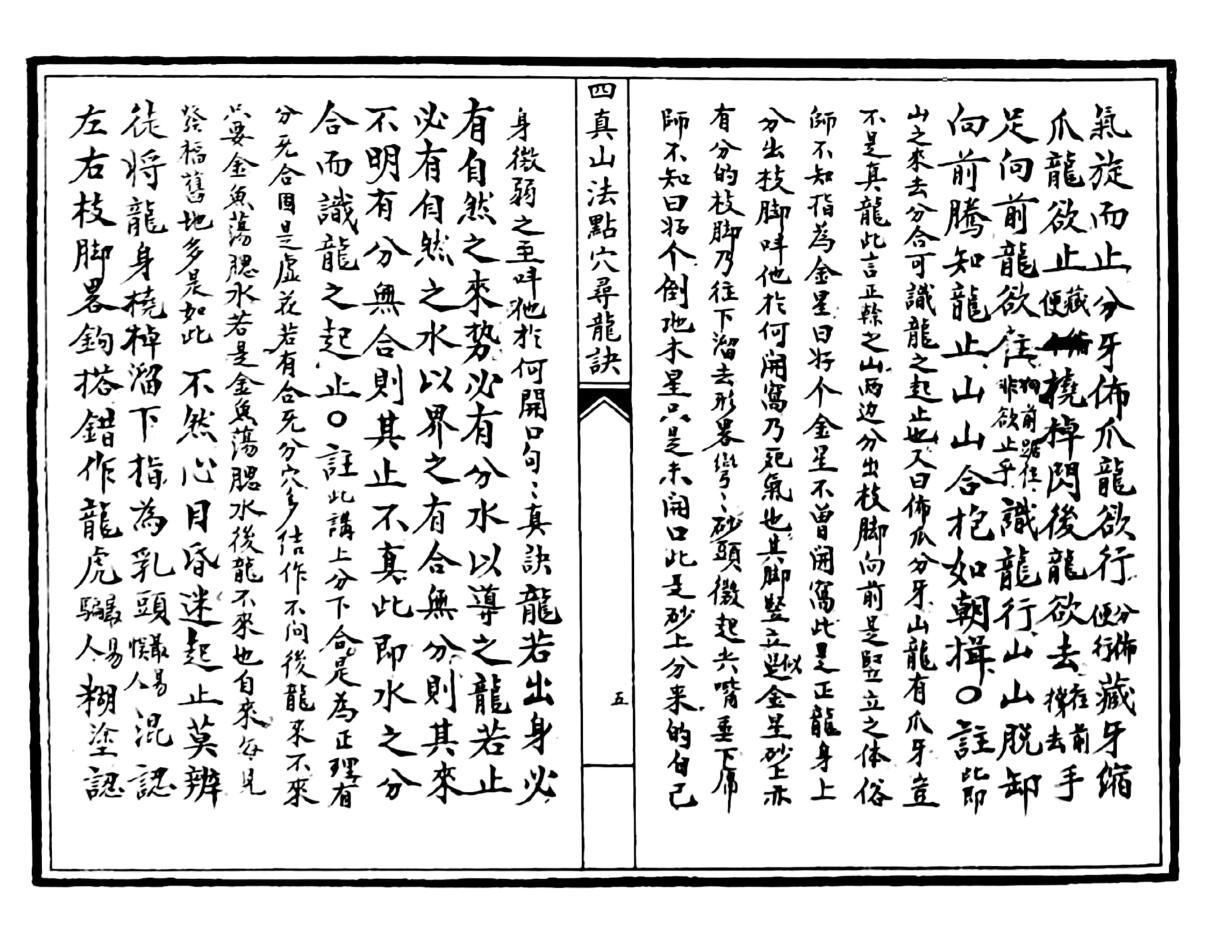 氣旋而止分牙佈爪龍欲行分佈便行藏牙縮
爪龍欲止藏縮便橈棹閃後龍欲去橈往前棹去手
足向前龍欲住狗前踞住非欲止乎識龍行山山脫卸
向前騰知龍止山山合抱如朝揖○註此即
山之來去分合可識龍之起止也又曰佈爪分牙山龍有爪牙豈
不是真龍此言正榦之山兩边分出枝脚向前是竪立之体俗
師不知指為金星曰好个金星不曾開窩此是正龍身上
分出枝脚呌他於何開窩乃死氣也其脚竪立似是金星砂上亦
有分的枝脚乃往下溜去形畧弯弯砂頭微起尖嘴垂下席
師不知曰好个倒地木星只是未開口此是砂上分來的自己
四真山法點穴尋龍訣
五
身微弱之至呌他於何開口句句真訣龍若出身必
有自然之來势必有分水以導之龍若止
必有自然之水以界之有合無分則其來
不明有分無合則其止不真此即水之分
合而識龍之起止○註此講上分下合是為正理有
分无合固是虛花若有合无分穴多結作不问後龍來不來
只要金魚蕩腮水若是金魚蕩腮水後龍不來也自來每見
發福舊地多是如此不然心目昏迷起止莫辨
徒將龍身橈棹溜下指為乳頭最易悮人混認
左右枝脚畧鉤搭錯作龍虎最易騙人糊塗認